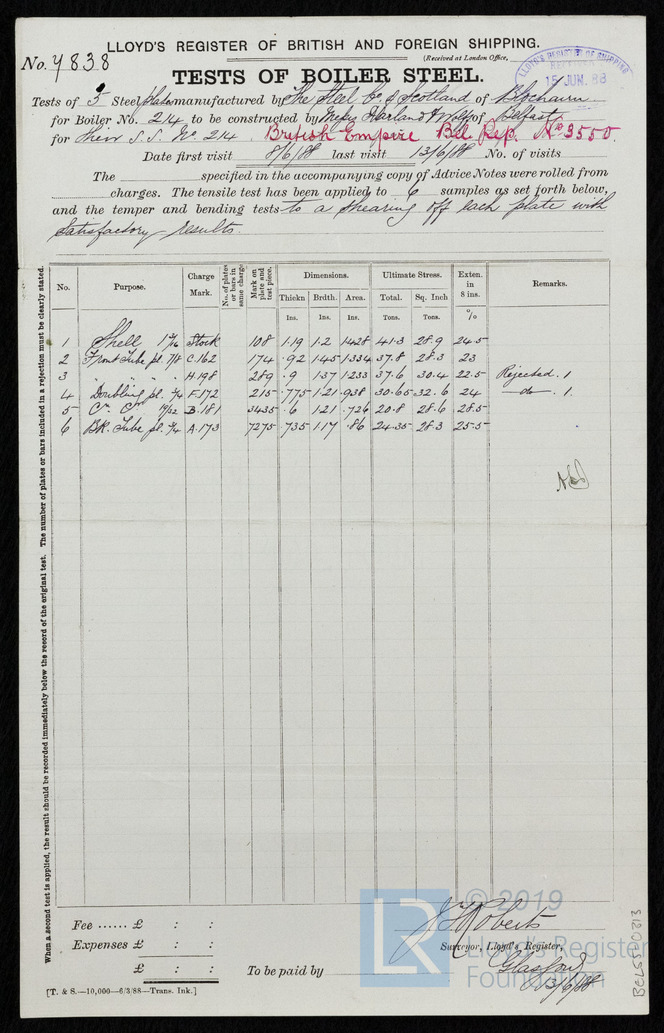 LLOYD'S REGISTER OF BRITISH AND FOREIGN SHIPPING.
No. 4838
(Received at London Office,
LLOYD'S REGISTER OF SHIPPING
15 JUN. 88
TESTS OF BOILER STEEL.
Tests of 5 Steel plates manufactured by The Steel Co of Scotland of Blochairn
for Boiler No. 214 to be constructed by Messrs Harland & Wolff of Belfast
for their S.S. No 214 British Empire Bel Rep. No 3550.
Date first visit 8/6/88 last visit 13/6/88 No. of visits
The specified in the accompanying copy of Advice Notes were rolled from
charges. The tensile test has been applied to 6 samples as set forth below,
and the temper and bending tests to a shearing off each plate with
satisfactory results.
When a second test is applied, the result should be recorded immediately below the record of the original test. The number of plates or bars included in a rejection must be clearly stated.
No. Purpose. Charge Mark. No. of plates or bars in same charge Mark on plate and test piece. Dimensions. Ultimate Stress. Exten. in 8 ins. Remarks.
Thickn Brdth. Area. Total. Sq. Inch
Ins. Ins. Tons. Tons. %
1 Shell 1 3/16 Stock 108 1.19 1.2 1.428 41.3 28.9 24.5
2 Front Tube pl. 7/8 C.162 174 .92 1.45 1.334 37.8 28.3 23
3 " " " " H.198 289 .9 1.37 1.233 37.6 30.4 22.5 Rejected. 1
4 Doubling pl. 3/4 F.172 215 .775 1.21 .938 30.65 32.6 24 do. 1.
5 19/32 B.181 3435 .6 1.21 .726 20.8 28.6 28.5
6 Bk. Tube pl. 3/4 A.173 7275 .735 1.17 .86 24.35 28.3 25.5
Fee ...... £ : :
Expenses £ : :
£ : :
To be paid by
J Roberts
Surveyor, Lloyd's Register,
Glasgow
13/6/88
[T. & S.—10,000—6/3/88—Trans. Ink.]
LR
© 2019
Lloyd's Register
Foundation
BEL5500213